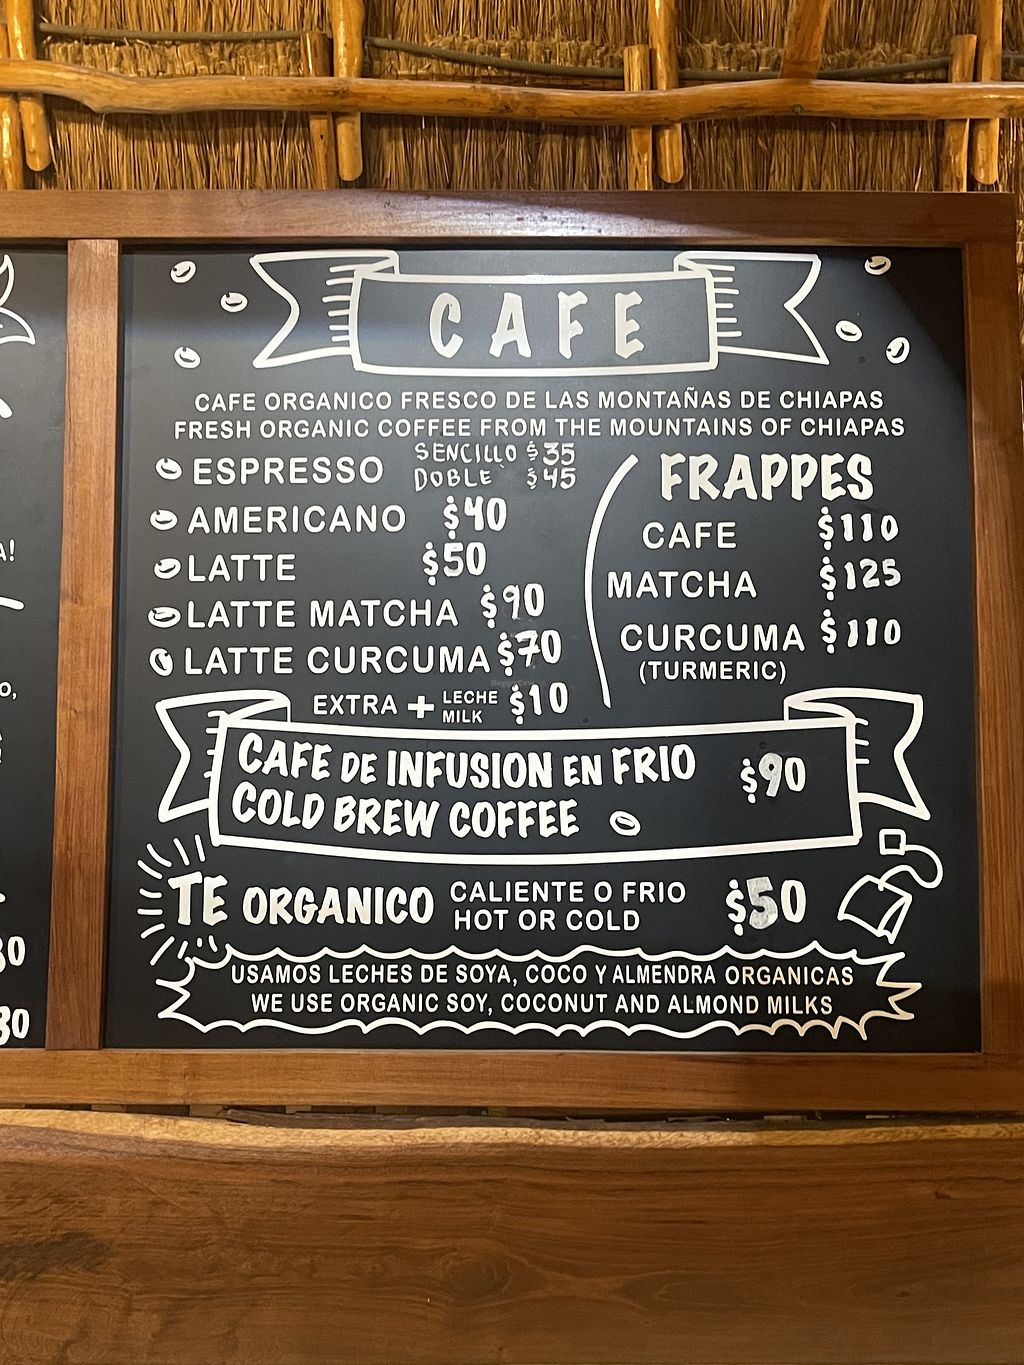 CAFE
CAFE ORGANICO FRESCO DE LAS MONTAÑAS DE CHIAPAS
FRESH ORGANIC COFFEE FROM THE MOUNTAINS OF CHIAPAS
ESPRESSO SENCILLO $35
DOBLE $45
AMERICANO $40
LATTE $50
LATTE MATCHA $90
LATTE CURCUMA $70
EXTRA + LECHE MILK $10
FRAPPES
CAFE $110
MATCHA $125
CURCUMA $110
(TURMERIC)
CAFE DE INFUSION EN FRIO $90
COLD BREW COFFEE
TE ORGANICO CALIENTE O FRIO $50
HOT OR COLD
USAMOS LECHES DE SOYA, COCO Y ALMENDRA ORGANICAS
WE USE ORGANIC SOY, COCONUT AND ALMOND MILKS